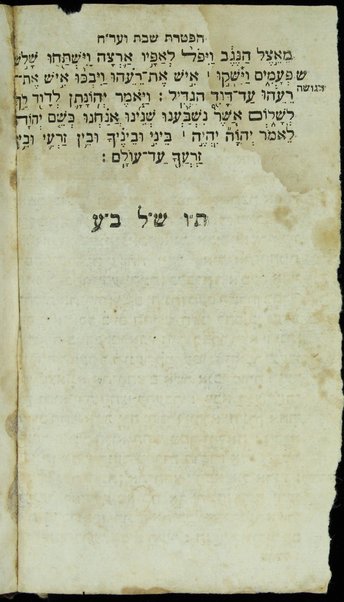 הפטרת שבת וער״ח
מֵאֵ֣צֶל הַנֶּ֔גֶב וַיִּפֹּ֨ל לְאַפָּ֥יו אַ֛רְצָה וַיִּשְׁתַּ֖חוּ שָׁלֹ֣שׁ
פְּעָמִ֑ים וַֽיִּשְּׁק֣וּ ׀ אִ֣ישׁ אֶת־רֵעֵ֗הוּ וַיִּבְכּוּ֙ אִ֣ישׁ אֶת־
רֵעֵ֔הוּ עַד־דָּוִ֖ד הִגְדִּֽיל׃ וַיֹּ֧אמֶר יְהוֹנָתָ֛ן לְדָוִ֖ד לֵ֣ךְ
לְשָׁל֑וֹם אֲשֶׁר֩ נִשְׁבַּ֨עְנוּ שְׁנֵ֜ינוּ אֲנַ֗חְנוּ בְּשֵׁ֤ם יְהוָֹה֙
לֵאמֹ֔ר יְהֹוָ֞ה יִֽהְיֶ֣ה ׀ בֵּינִ֣י וּבֵינֶ֗יךָ וּבֵ֥ין זַרְעִ֛י וּבֵ֥ין
זַרְעֲךָ֖ עַד־עוֹלָֽם׃
ש
דגושה
ת״ו ש״ל ב״ע